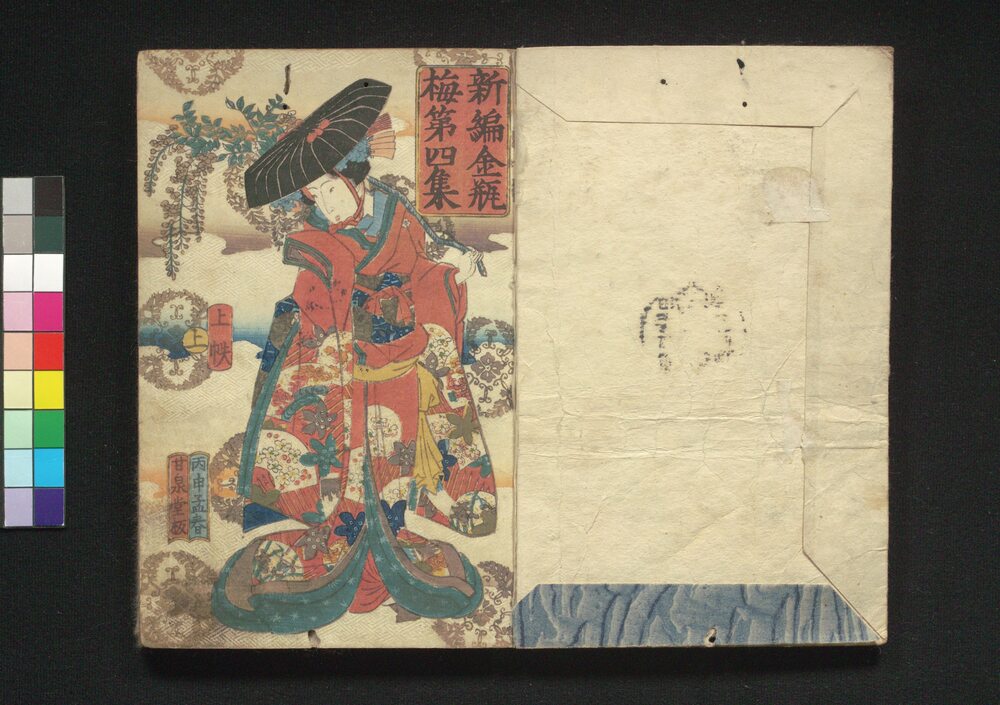 新編金瓶
梅第四集
上帙
上
丙申孟春
甘泉堂版